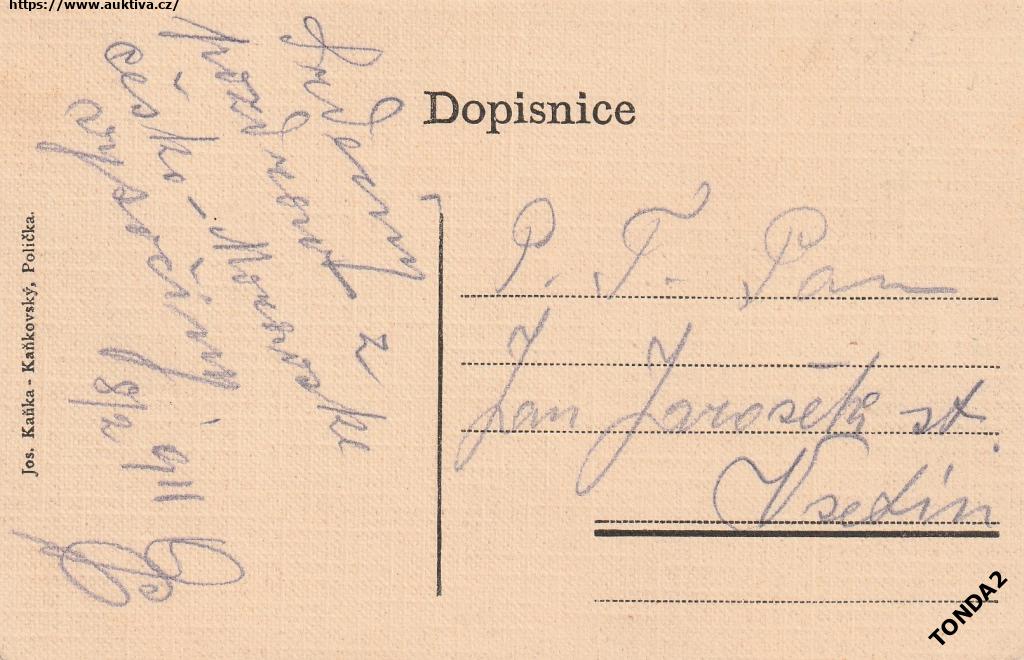 https://www.auktiva.cz/
Dopisnice
Srdečný
pozdrav z
česko-Moravské
vysočiny
18/2 911
P. T. Pan
Jan Jarošek st.
Vsetín
Jos. Kaňka - Kaňkovský, Polička.
TONDA2